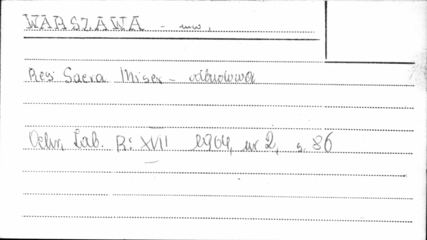 WARSZAWA - mw,
Res Sacra Miser - odbudowa
Ochr. Zab. R: XVII 1964, nr 2, s. 86